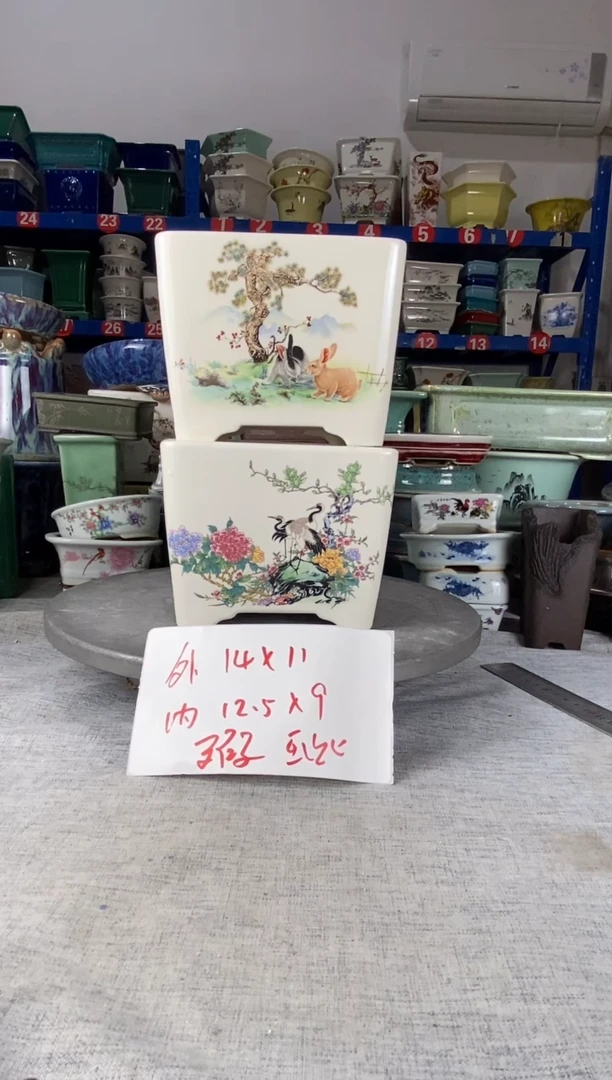 24
23
22
1
2
3
4
5
6
7
26
25
12
13
14
外 14×11
内 12.5×9